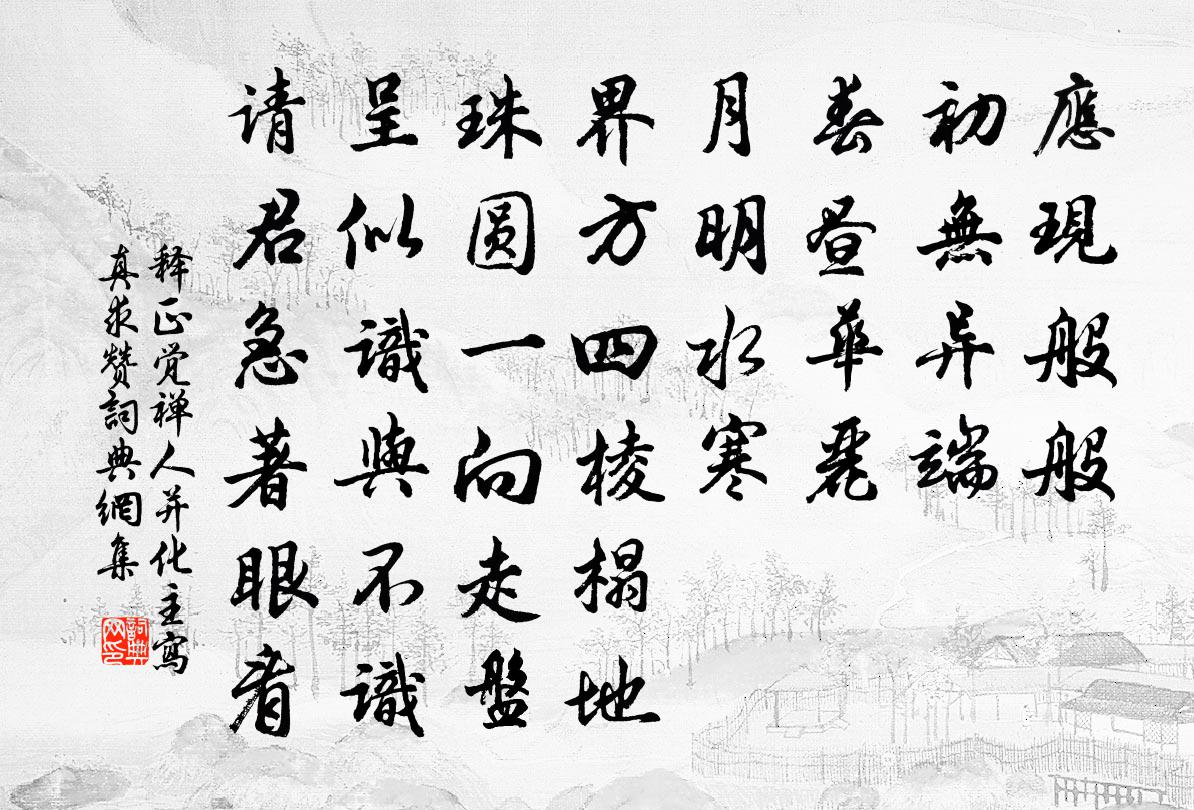 應現般般
初無异端
春昼華麗
月明水寒
界方四棱榻地
珠圆一向走盤
呈似識與不識
请君急著眼看
释正觉禅人并化主寫
真求赞詞典網集
詞典网印